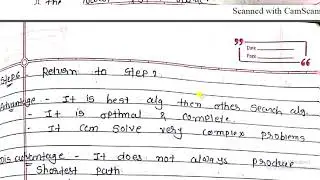 Scanned with CamScan
Date
Page
Step6 Return to Step 2
Advantage - It is best alg then other search alg.
- It is optimal & complete
- It can solve very complex problems
Disadvantage - It does not always produe
Shortest path